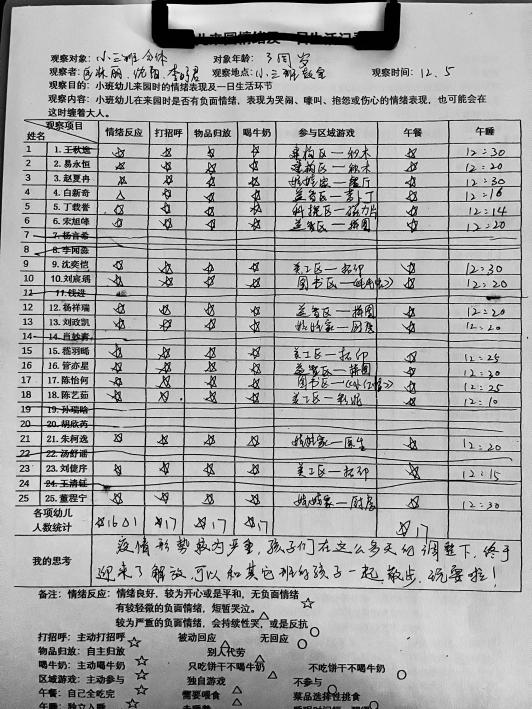 儿来园情绪及一日生活记
观察对象：小三班全体 对象年龄：3周岁
观察者： 观察地点：小三班教室 观察时间：12.5
观察目的：小班幼儿来园时的情绪表现及一日生活环节
观察内容：小班幼儿在来园时是否有负面情绪，表现为哭闹、嚎叫、抱怨或伤心的情绪表现，也可能会在
这时缠着大人。
观察项目 姓名 情绪反应 打招呼 物品归放 喝牛奶 参与区域游戏 午餐 午睡
1 1. 王秋逸 ☆ ☆ ☆ ☆ 建构区—积木 ☆ 12:30
2 2. 易永恒 ☆ ☆ ☆ ☆ 建构区—积木 ☆ 12:20
3 3. 赵夏冉 ☆ ☆ ☆ ☆ 娃娃家—客厅 ☆ 12:30
4 4. 白新奇 △ ☆ ☆ ☆ 益智区— ☆ 12:16
5 5. 丁载誉 ☆ ☆ ☆ ☆ 科探区—磁力片 ☆ 12:14
6 6. 宋旭峰 ☆ ☆ ☆ ☆ 益智区—拼图 ☆ 12:20
7 7. 杨音希
8 8. 李闻淼
9 9. 沈奕恺 ☆ ☆ ☆ ☆ 美工区—拓印 ☆ 12:30
10 10. 刘宸瑀 ☆ ☆ ☆ ☆ 图书区— ☆ 12:20
11 11. 钱进
12 12. 杨祥瑞 ☆ ☆ ☆ ☆ 益智区—拼图 ☆ 12:20
13 13. 刘政凯 ☆ ☆ ☆ ☆ 娃娃家—厨房 ☆ 12:20
14 14.
15 15. 嵇羽晞 ☆ ☆ ☆ ☆ 美工区—拓印 ☆ 12:25
16 16. 管亦星 ☆ ☆ ☆ ☆ 益智区—拼图 ☆ 12:30
17 17. 陈怡何 ☆ ☆ ☆ ☆ 图书区— ☆ 12:25
18 18. 陈艺茹 ☆ ☆ ☆ ☆ 美工区— ☆ 12:10
19 19. 孙瑞晗
20 20. 胡欣芮
21 21. 朱柯逸 ☆ ☆ ☆ ☆ 娃娃家—医生 ☆ 12:20
22 22. 汤舒谣
23 23. 刘徒序 ☆ ☆ ☆ ☆ 美工区—拓印 ☆ 12:15
24 24. 王清钰
25 25. 董程宁 ☆ ☆ ☆ ☆ 娃娃家—厨房 ☆ 12:30
各项幼儿
人数统计 ☆16 △1 ☆17 ☆17 ☆17 ☆17
我的思考 疫情形势较为严重，孩子们在这么多天的调整下，终于
迎来了解放，可以和其它班的孩子一起散步、玩耍啦！
备注：情绪反应：情绪良好，较为开心或是平和，无负面情绪 ☆
有较轻微的负面情绪，短暂哭泣。 △
较为严重的负面情绪，会持续性哭，或是反抗 ○
打招呼：主动打招呼 ☆ 被动回应 △ 无回应 ○
物品归放：自主归放 ☆ 别人代劳 △
喝牛奶：主动喝牛奶 ☆ 只吃饼干不喝牛奶 △ 不吃饼干不喝牛奶 ○
区域游戏：主动参与 ☆ 独自游戏 △ 不参与 ○
午餐：自己全吃完 ☆ 需要喂食 △ 菜品选择性挑食 ○
午睡：独立入睡